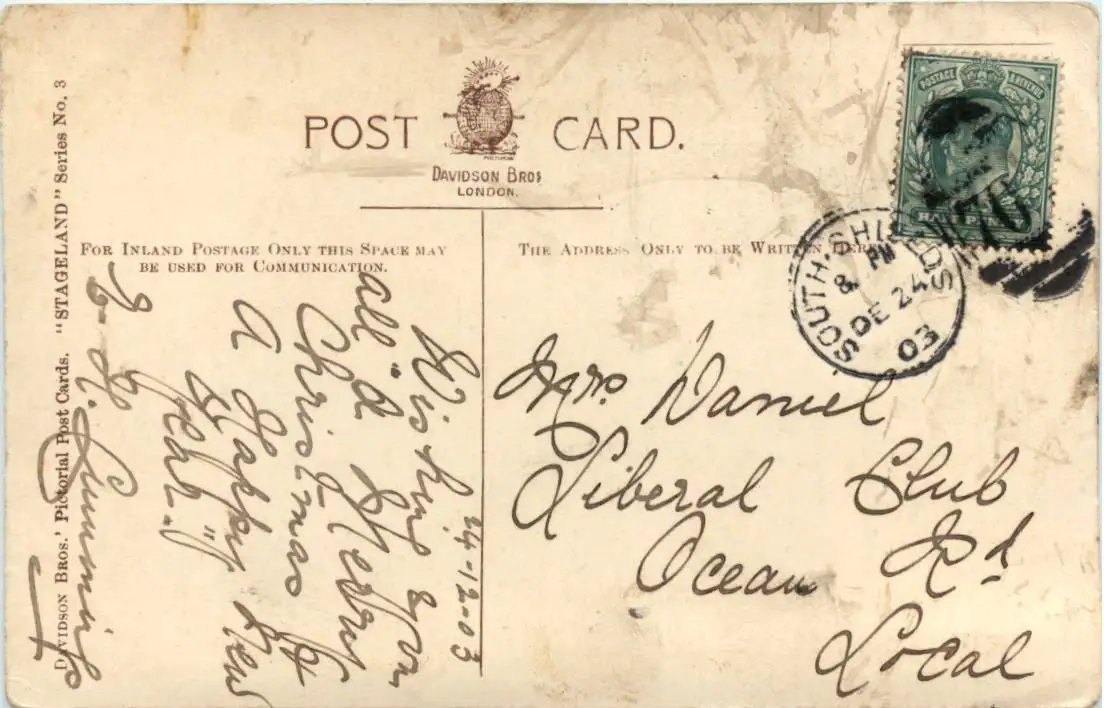 POST CARD.
DAVIDSON BROS
LONDON.
FOR INLAND POSTAGE ONLY THIS SPACE MAY
BE USED FOR COMMUNICATION.
THE ADDRESS ONLY TO BE WRITTEN HERE
DAVIDSON BROS.' Pictorial Post Cards. "STAGELAND" Series No. 3
POSTAGE REVENUE
SOUTH SHIELDS
8 PM
DE 24
03
24-12-03
Wishing you
all a Merry
Christmas &
A Happy New
Year.
Mrs Daniel
Liberal Club
Ocean Rd
Local